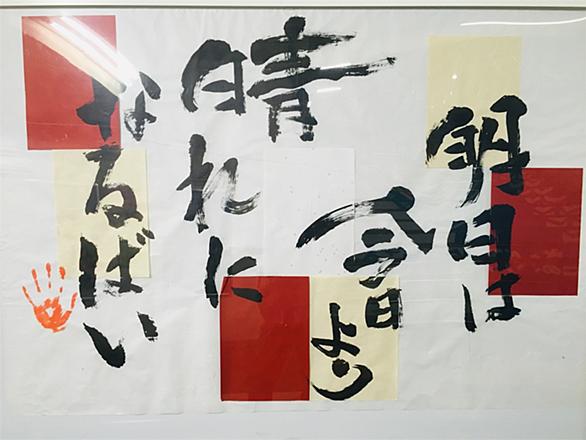 明日は
今日より
晴れに
なるばい